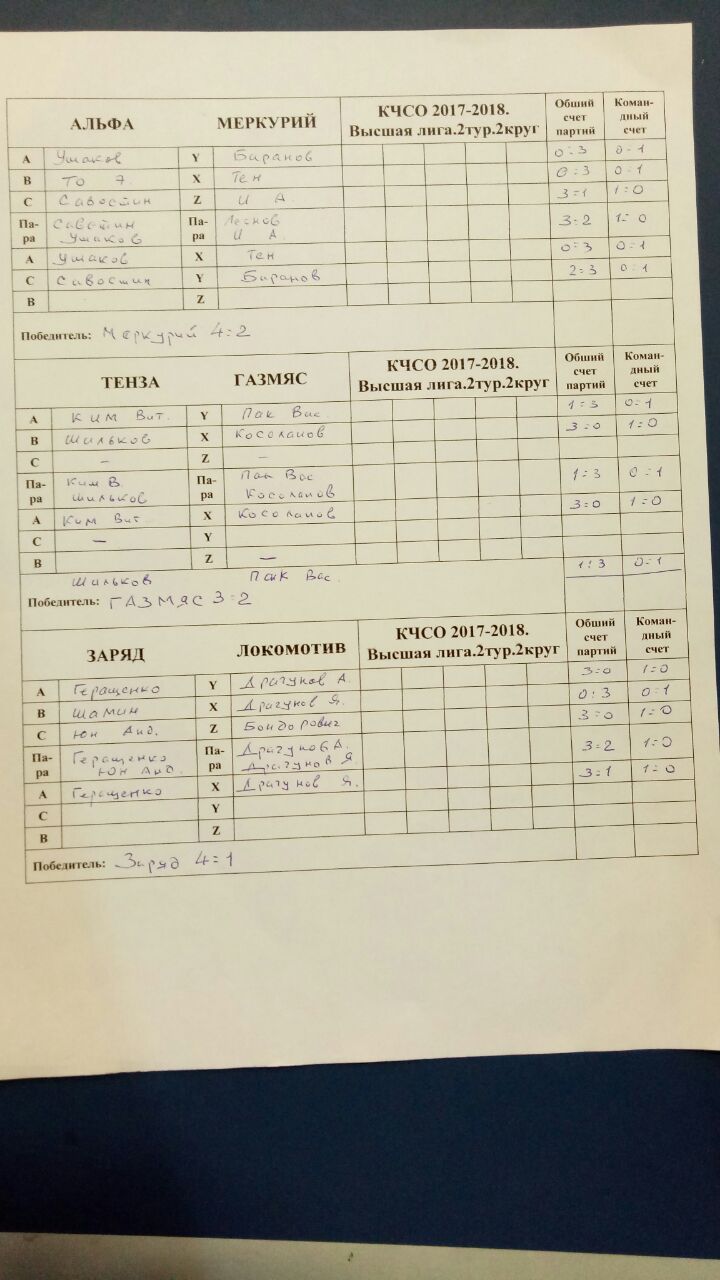 АЛЬФА МЕРКУРИЙ КЧСО 2017-2018. Высшая лига.2тур.2круг Обший счет партий Коман-дный счет
A Ушаков Y Баранов 0:3 0:1
B То А. X Тен 0:3 0:1
C Савостин Z И А. 3:1 1:0
Па-ра Савостин Ушаков Па-ра Леснов И А 3:2 1:0
A Ушаков X Тен 0:3 0:1
C Савостин Y Баранов 2:3 0:1
B Z
Победитель: Меркурий 4:2
ТЕНЗА ГАЗМЯС КЧСО 2017-2018. Высшая лига.2тур.2круг Обший счет партий Коман-дный счет
A Ким Вит. Y Пак Вас 1:3 0:1
B Шильков X Косолапов 3:0 1:0
C – Z –
Па-ра Ким В. Шильков Па-ра Пак Вас Косолапов 1:3 0:1
A Ким Вит X Косолапов 3:0 1:0
C – Y
B Z – 1:3 0:1
Шильков Пак Вас.
Победитель: ГАЗМЯС 3:2
ЗАРЯД ЛОКОМОТИВ КЧСО 2017-2018. Высшая лига.2тур.2круг Обший счет партий Коман-дный счет
A Геращенко Y Драгунов А. 3:0 1:0
B Шамин X Драгунов Я. 0:3 0:1
C Юн Анд. Z Бондорович 3:0 1:0
Па-ра Геращенко Юн Анд. Па-ра Драгунов А. Драгунов Я. 3:2 1:0
A Геращенко X Драгунов Я. 3:1 1:0
C Y
B Z
Победитель: Заряд 4:1